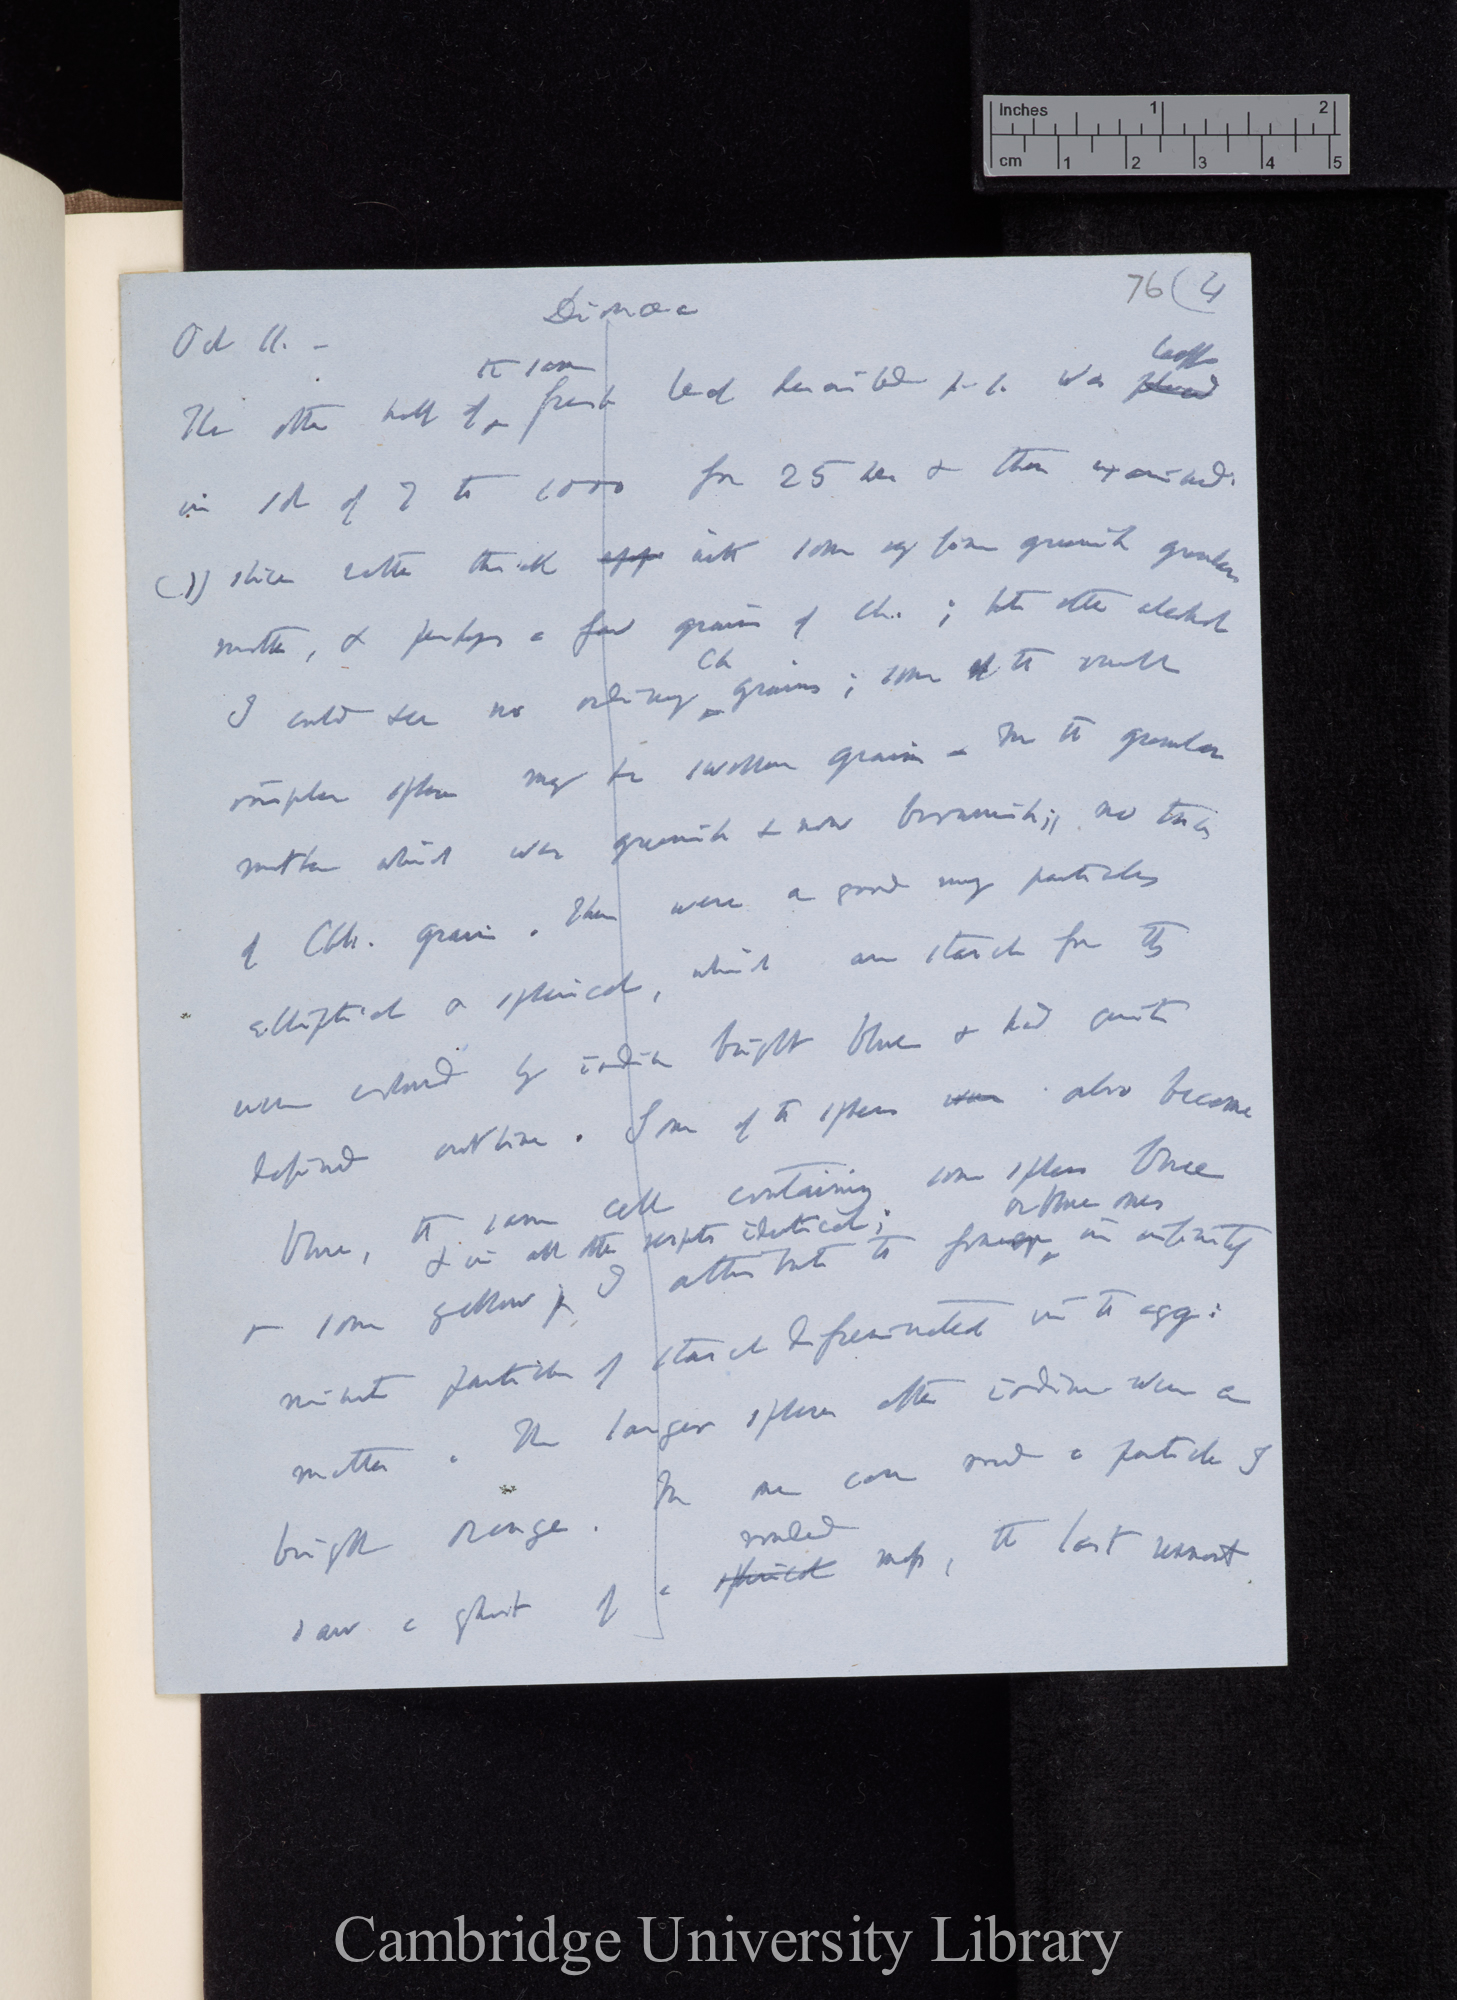 Inches 1 2
cm 1 2 3 4 5
76 (4
Dionaea
Oct 11. –
the same
The other half of fresh leaf was left placed
in sol of 7 to 1000 for 25 hrs & then examined.
(1) slice rather thick app with some greenish granular
matter, & perhaps a few grains of Ch. ; but after alcohol
Ch
I could see no ordinary grains ; some of the smaller
spheres may be swollen grains & the granular
matter which was greenish & now brownish ; no
of Chl. grain . There were a good many particles
elliptical or spherical, which are starch for they
were coloured by iodine bright blue & had quite
defined outline . Some of the spheres were also become
blue, the same cell containing some spheres blue
& in all other respects identical ; or blue ones
& some yellow ; I attribute to an infinity
minute particles of starch disseminated in the agg :
matter . The larger spheres after iodine were a
bright orange . In one case round a particle I
rounded
saw a ghost of a spherical mass, the last remnant
Cambridge University Library